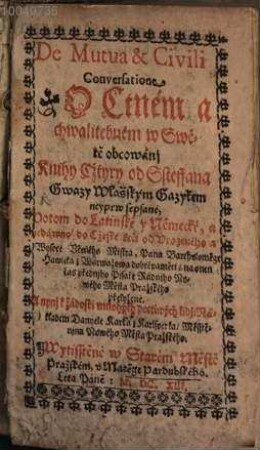 10049735
De Mutua & Civili
Conversatione
O Ctném a
chwalitebném w Swě-
tě obcowánj
Knihy Cžtyry od Ssteffana
Gwazy Wlasským Gazykem
neyprw sepsané,
Potom do Latinské y Německé, a
nedáwno do Cžeské Ržeči od Vrozeného a
Wysoce Včeného Mistra, Pana Bartholoměge
Hawlika z Warwažowa dobré paměti / na onen
čas předního Pisaře Raddního No-
wého Města Pražského
přeložené.
A nynj k žádosti mnohých poctiwých lidj Ná-
kladem Danyele Karla z Karlsperka / Měsstě-
nina Nowého Města Pražského.
Wytisstěné w Starém Městě
Pražském, v Matěge Pardubského.
Leta Páně : M. DC. XIII.